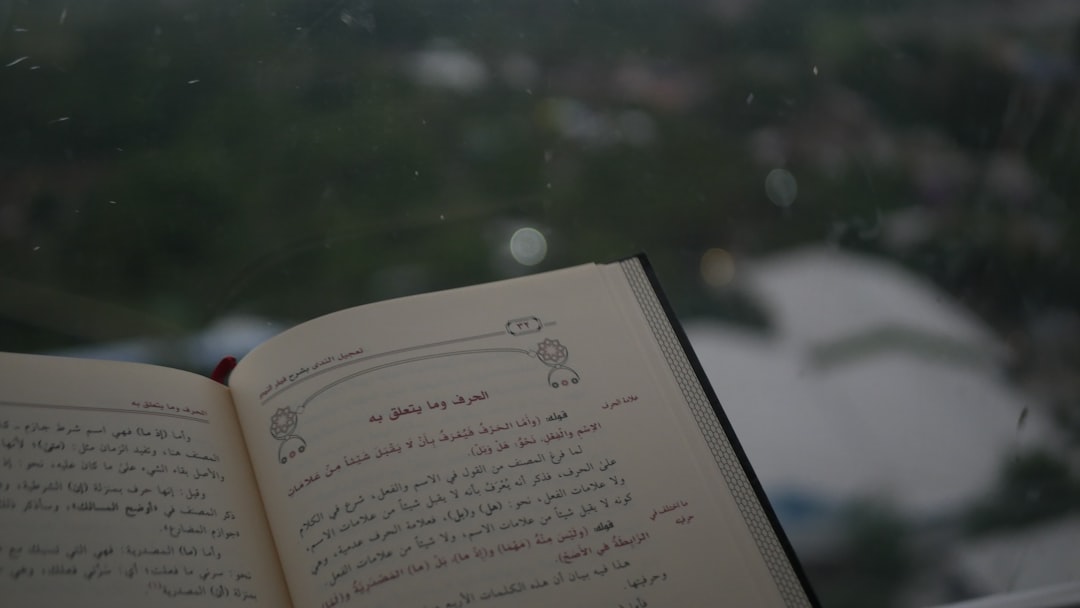 ٣٢
تعجيل الندى بشرح قطر الندى
الحرف وما يتعلق به
علامة الحرف
قوله: (وأمّا الحَرْفُ فَيُعْرَفُ بِأَنْ لا يَقْبَلَ شَيْئاً مِنْ عَلاماتِ
الاِسْمِ والْفِعْلِ، نَحْوُ: هَلْ وَبَلْ).
لما فرغ المصنف من القول في الاسم والفعل، شرع في الكلام
على الحرف، فذكر أنه يُعْرَفُ بأنه لا يقبل شيئاً من علامات الاسم،
ولا علامات الفعل، نحو: (هل) و(بل)، فعلامة الحرف عدمية، وهي
كونه لا يقبل شيئاً من علامات الاسم، ولا شيئاً من علامات الفعل.
ما اختلف في
حرفيته
قوله: (وَلَيْسَ مِنْهُ (مَهْمَا) و(إِذْ مَا)، بَلْ (ما) المَصْدَرِيَّةُ و(لَمَّا)
الرَّابِطَةُ في الأَصَحِّ).
هذا فيه بيان أن هذه الكلمات الأربع
وحرفيتها.
الحرف وما يتعلق به
وأما (إذ ما) فهي اسم شرط جازم
المصنف هنا، وتفيد الزمان مثل: (متى)؛ لأنها
والأصل بقاء الشيء على ما كان عليه، نحو: إذ
وقيل: إنها حرف بمنزلة (إن) الشرطية،
ذكر المصنف في «أوضح المسالك»، وسأذكر ذلك
«جوازم المضارع».
وأما (ما) المصدرية: فهي التي تسبك مع
نحو: سرني ما فعلت؛ أي: سرّني فعلك، وهي
بمنزلة (أن) المصدرية(١).